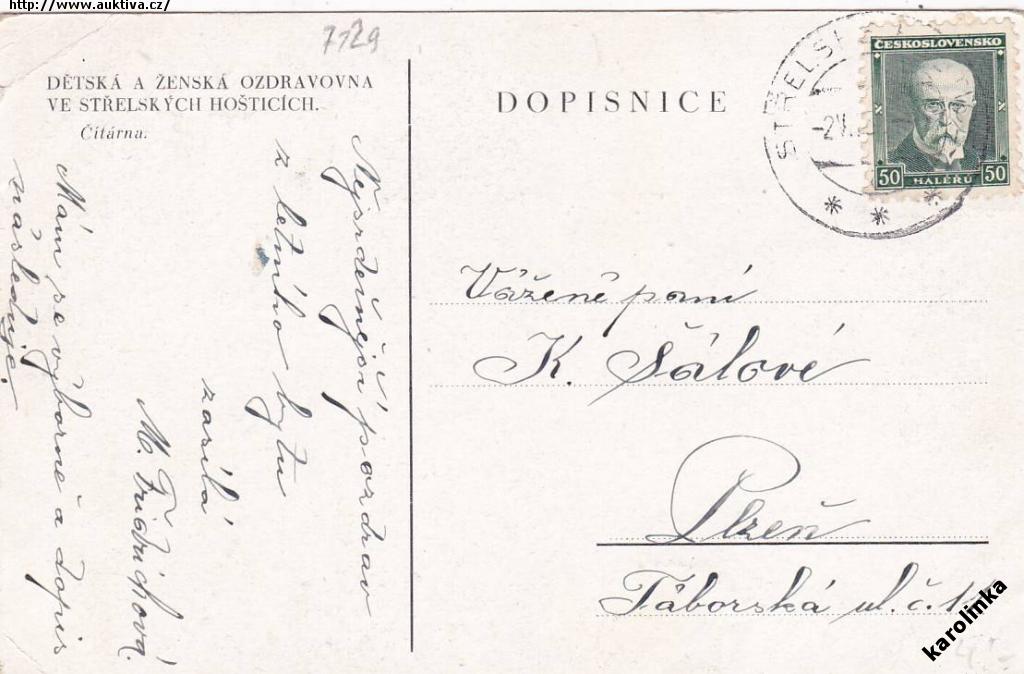 http://www.auktiva.cz/
7129
DĚTSKÁ A ŽENSKÁ OZDRAVOVNA
VE STŘELSKÝCH HOŠTICÍCH.
Čítárna.
DOPISNICE
STŘELSK
-2V
ČESKOSLOVENSKO
50 HALÉŘŮ 50
Nejsrdečnější pozdrav
z letního bytu
zasílá
M. Fridrichová.
Mám se výborně a dopis
následuje.
Vážené paní
K. Šálové
Plzeň
Táborská ul. č.
karolinka